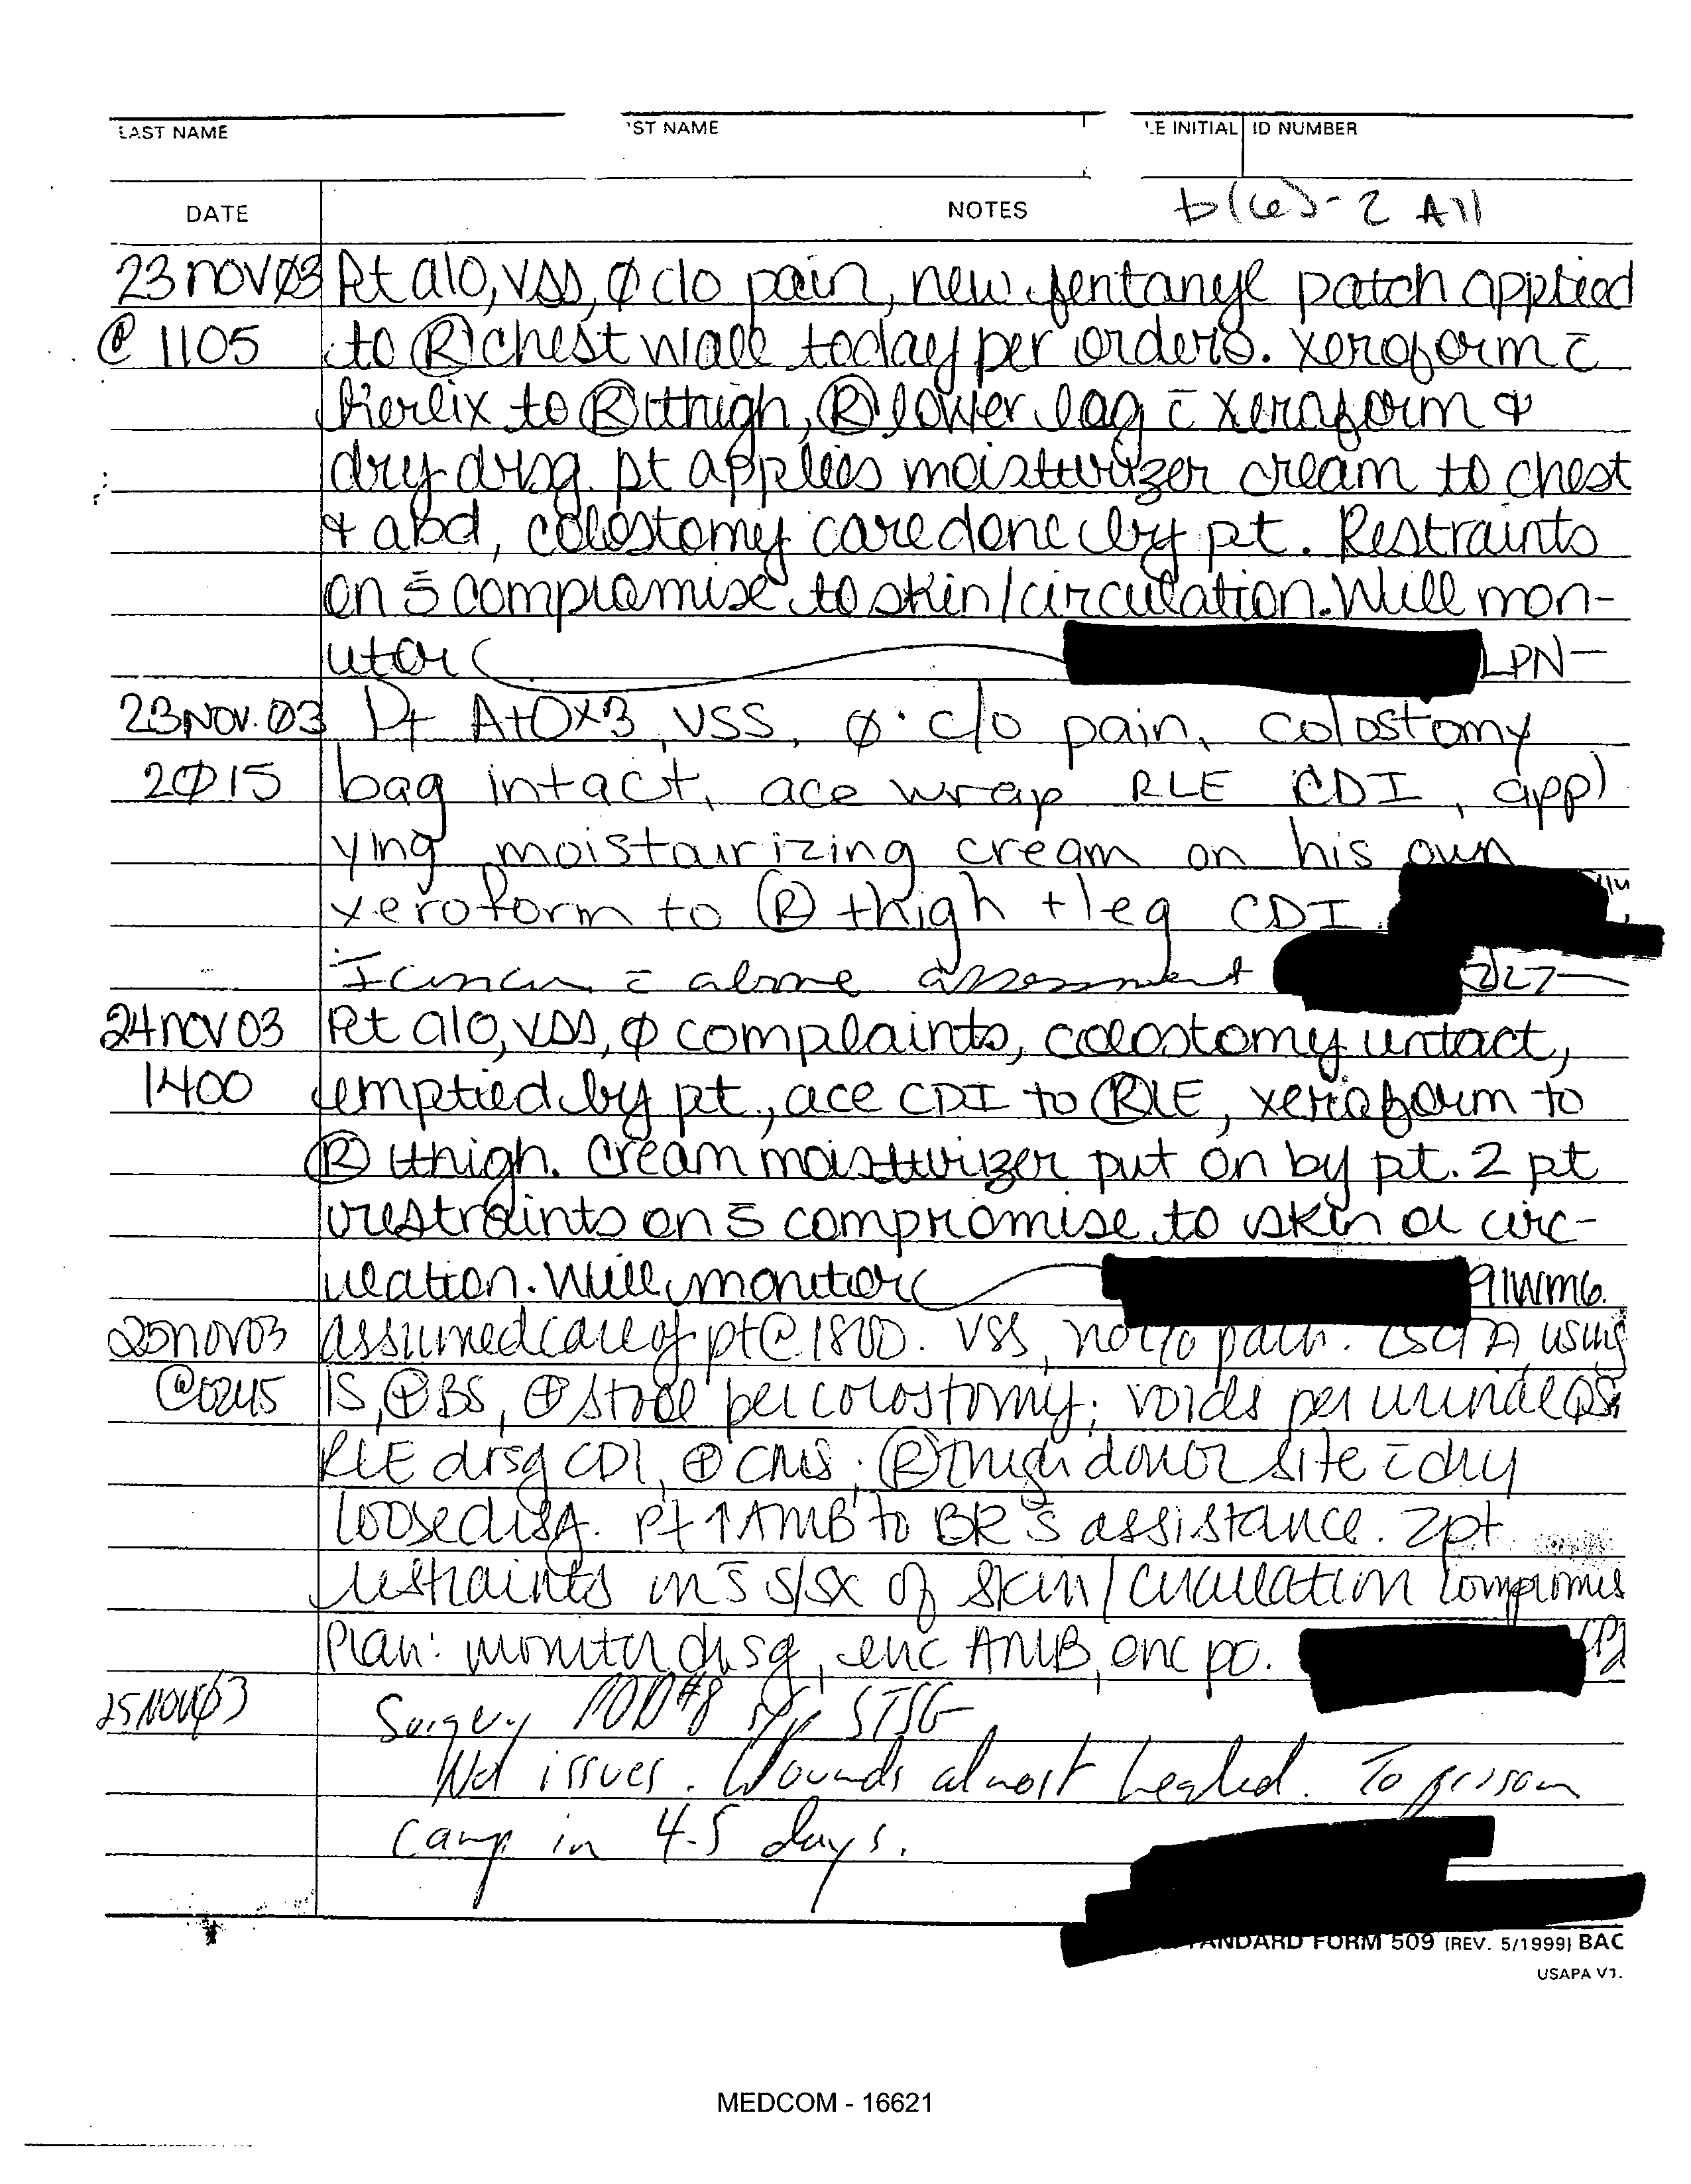 LAST NAME 'ST NAME 'LE INITIAL ID NUMBER
DATE NOTES b(6)-2 All
23 nov 03 Pt a/o, vss, ø c/o pain, new fentanyl patch applied
@ 1105 to Ⓡ chest wall today per orders. xeroform c̄
kerlix to Ⓡ thigh, Ⓡ lower leg c̄ xeroform &
dry drsg. pt applies moisturizer cream to chest
& abd, colostomy care done by pt. Restraints
on s̄ compromise to skin/circulation. Will mon-
itor LPN
23 NOV. 03 Pt A+OX3, VSS, ø c/o pain, colostomy
2015 bag intact, ace wrap RLE CDI, appl
ying moistaurizing cream on his own
xeroform to Ⓡ thigh + leg CDI.
I concur c̄ above assessment
24 nov 03 Pt a/o, vss, ø complaints, colostomy intact,
1400 emptied by pt., ace CDI to ⓇLE, xeroform to
Ⓡ thigh. Cream moisturizer put on by pt. 2 pt
restraints on s̄ compromise to skin or circ-
ulation. Will monitor 91WM6.
25 nov 03 assumed care of pt @ 1800. VSS, no c/o pain. LSCTA, using
@ 0245 IS, ⊕BS, ⊕ stool per colostomy; voids per urinal QS.
RLE drsg CDI, ⊕ CMS; Ⓡ thigh donor site c̄ dry
loose drsg. Pt ↑ AMB to BR s̄ assistance. 2pt
restraints in s̄ s/sx of skin/circulation compromis
Plan: monitor drsg, enc AMB, enc po.
25 NOV 03 Surgery POD #8 s/p STSG
No issues. Wounds almost healed. To prison
camp in 4-5 days.
STANDARD FORM 509 (REV. 5/1999) BAC
USAPA V1.
MEDCOM - 16621